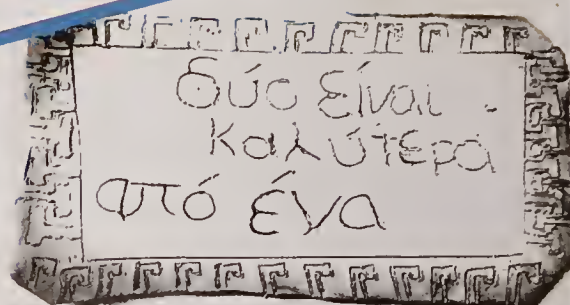 δύο είναι
καλύτερα
από ένα